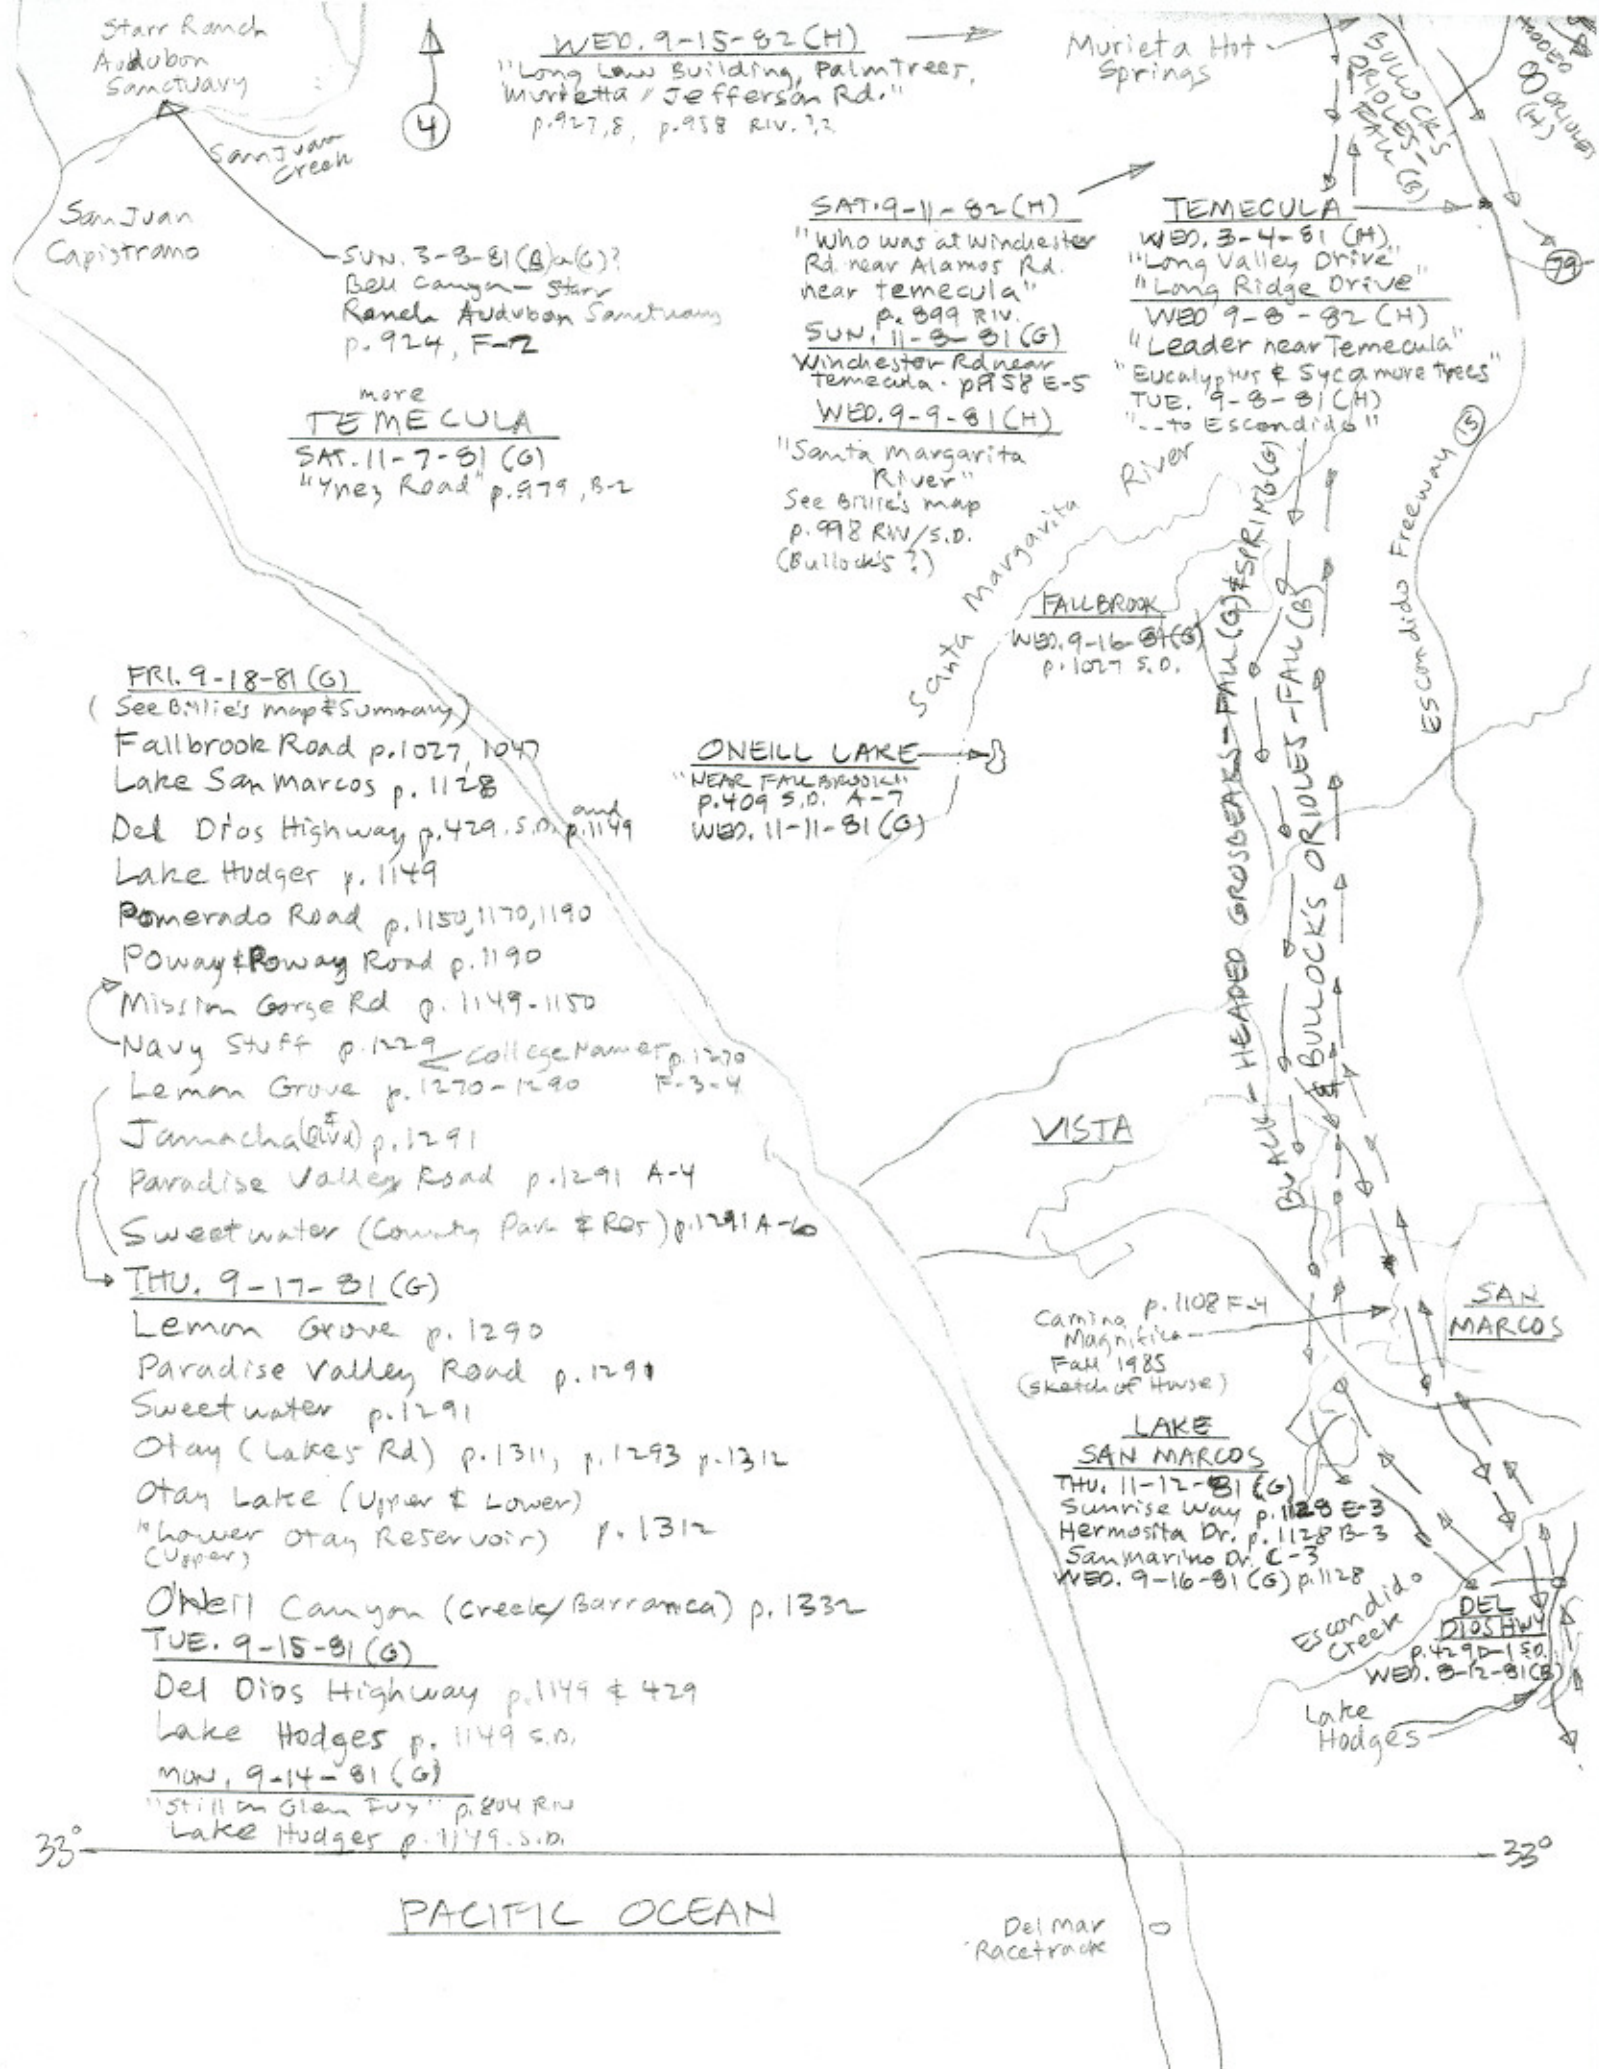 Starr Ranch
Audubon
Sanctuary
San Juan
Creek
San Juan
Capistrano
4
WED. 9-15-82 (H)
"Long Low Building, Palm trees,
Murietta, Jefferson Rd."
p.927,8, p.958 RIV. ??
Murieta Hot
Springs
BULLOCK'S
ORIOLES-
FALL (B)
HOODED
ORIOLES
(H)
79
SUN. 3-8-81 (B)or(G)?
Bell Canyon - Starr
Ranch Audubon Sanctuary
p.924, F-2
more
TEMECULA
SAT. 11-7-81 (G)
"Ynez Road" p.979, B-2
SAT. 9-11-82 (H)
"Who was at Winchester
Rd. near Alamos Rd.
near temecula"
p. 899 RIV.
SUN. 11-8-81 (G)
Winchester Rd near
Temecula. p958 E-5
WED. 9-9-81 (H)
"Santa Margarita
River"
See Billie's map
p.998 RIV/S.D.
(Bullock's ?)
TEMECULA
WED. 3-4-81 (H)
"Long Valley Drive"
"Long Ridge Drive"
WED 9-8-82 (H)
"Leader near Temecula"
"Eucalyptus & Sycamore trees"
TUE. 9-8-81 (H)
"--to Escondido"
Santa Margarita River
Escondido Freeway 15
BLACK-HEADED GROSBEAKS-FALL (G) & SPRING (G)
& BULLOCK'S ORIOLES-FALL (B)
FALLBROOK
WED. 9-16-81 (G)
p.1027 S.D.
ONEILL LAKE
"NEAR FALLBROOK"
p.409 S.D. A-7
WED. 11-11-81 (G)
FRI. 9-18-81 (G)
(See Billie's map & Summary)
Fallbrook Road p.1027, 1047
Lake San Marcos p. 1128
Del Dios Highway p.429. S.D. and p.1149
Lake Hodges p. 1149
Pomerado Road p.1150, 1170, 1190
Poway & Poway Road p.1190
Mission Gorge Rd p. 1149-1150
Navy Stuff p.1229 College Names p.1270
F-3-4
Lemon Grove p.1270-1290
Jamacha (& Blvd) p.1291
Paradise Valley Road p.1291 A-4
Sweetwater (County Park & Res) p.1291 A-6
THU. 9-17-81 (G)
Lemon Grove p. 1290
Paradise Valley Road p.1291
Sweetwater p.1291
Otay (Lakes Rd) p.1311, p.1293 p.1312
Otay Lake (Upper & Lower)
"Lower Otay Reservoir) p.1312
(Upper)
O'Neil Canyon (Creek/Barranca) p.1332
TUE. 9-15-81 (G)
Del Dios Highway p.1149 & 429
Lake Hodges p. 1149 S.D.
MON. 9-14-81 (G)
"Still on Glen Ivy" p.804 RIV
Lake Hodges p.1149. S.D.
VISTA
SAN
MARCOS
Camino p.1108 F-4
Magnifica
Fall 1985
(Sketch of House)
LAKE
SAN MARCOS
THU. 11-12-81 (G)
Sunrise Way p.1128 E-3
Hermosita Dr. p.1128 B-3
San Marino Dr. C-3
WED. 9-16-81 (G) p.1128
Escondido
Creek
DEL
DIOS HWY
p.429 D-1 S.D.
WED. 8-12-81 (B)
Lake
Hodges
33° 33°
PACIFIC OCEAN
Del Mar
Racetrack